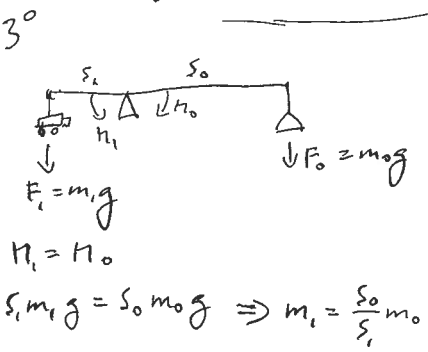 3°
S₁ S₀
M₁ M₀
F₁ = m₁g
F₀ = m₀g
M₁ = M₀
S₁ m₁ g = S₀ m₀ g ⇒ m₁ = S₀/S₁ m₀